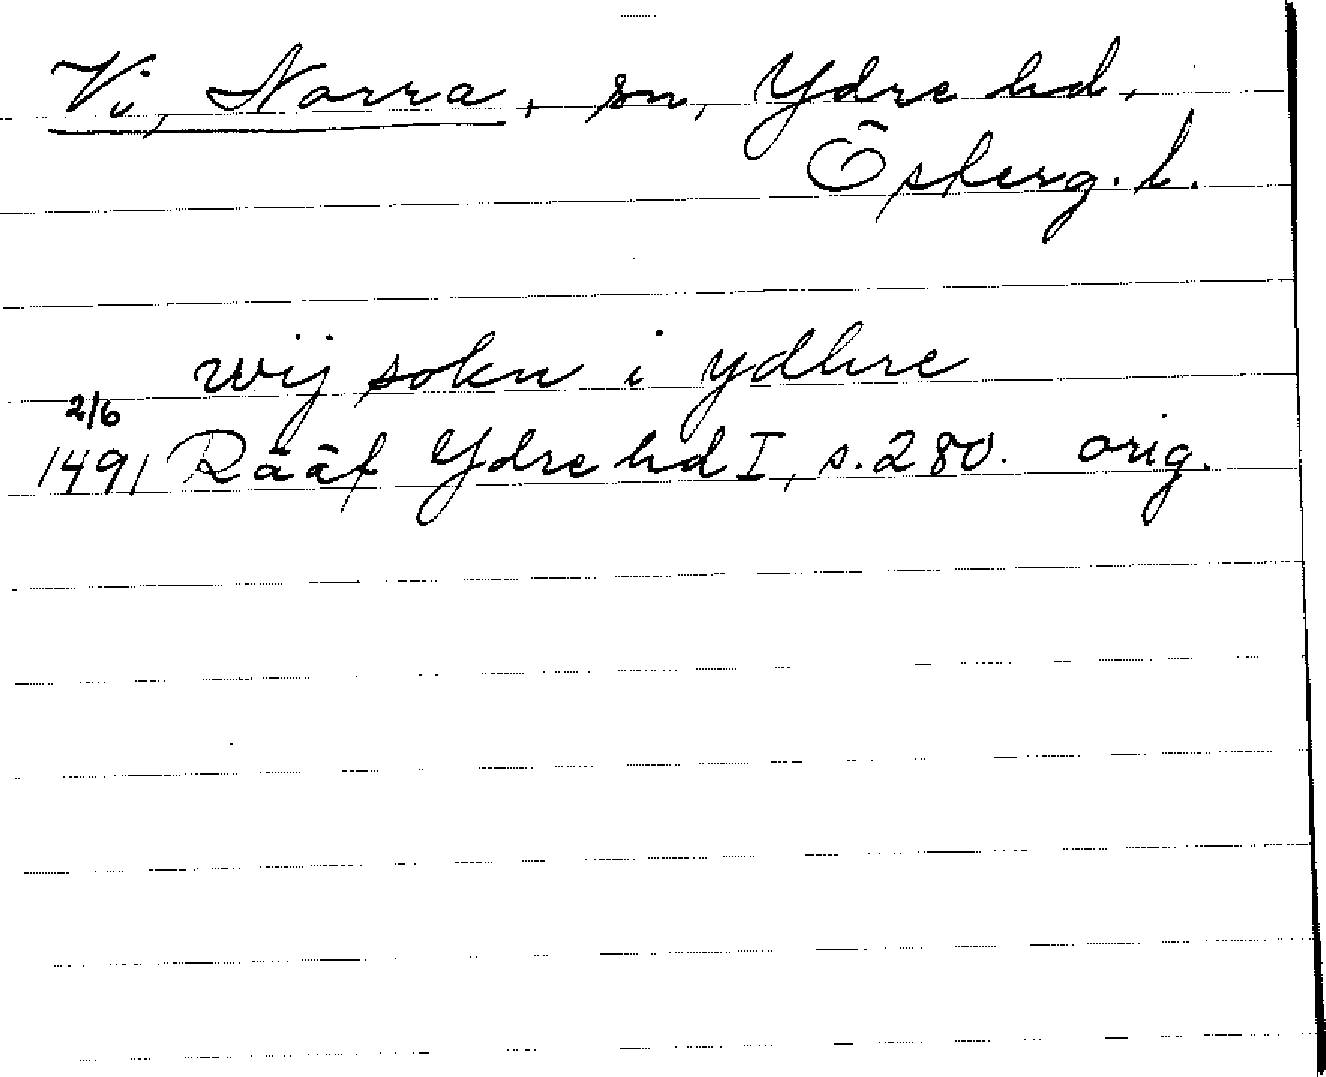 Vi, Norra, sn, Ydre hd,
Östergl.
wij sokn i ydhre
2/6
1491 Rääf Ydre hd I, s. 280. orig.